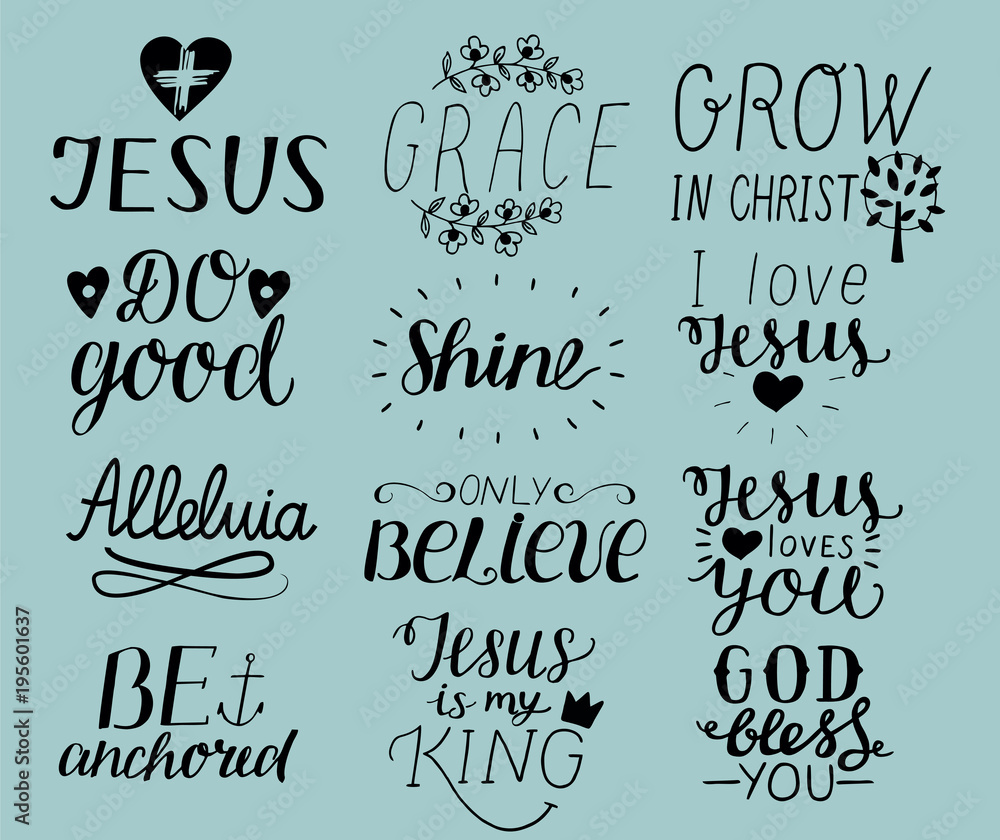 JESUS
GRACE
GROW
IN CHRIST
DO
good
Shine
I love
Jesus
Alleluia
ONLY
BELIEVE
Jesus
LOVES
you
BE
anchored
Jesus
is my
KING
GOD
bless
YOU
Adobe Stock | #195601637